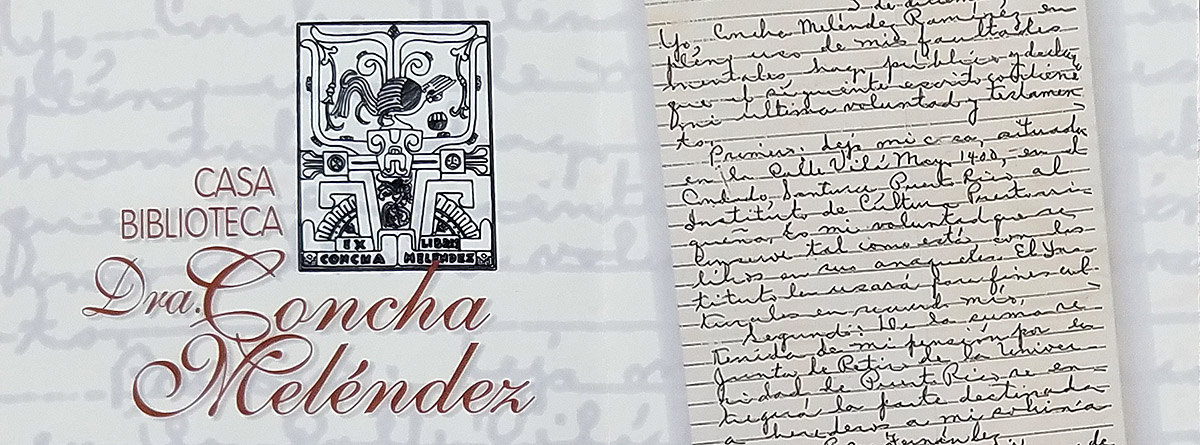 CASA
BIBLIOTECA
Dra. Concha
Meléndez
EX LIBRIS
CONCHA MELÉNDEZ
Yo, Concha Meléndez Ramírez, en
pleno uso de mis facultades
mentales hago público y declaro
que el siguiente escrito contiene
mi última voluntad y testamen-
to,
Primero: dejo mi casa, situada
en la Calle Vilá Mayo 1400, en el
Condado, Santurce, Puerto Rico al
Instituto de Cultura Puertorri-
queña. Es mi voluntad que se
conserve tal como está, con los
libros en sus anaqueles. El Ins-
tituto la usará para fines cul-
turales en recuerdo mío.
Segundo: De la suma re-
tenida de mi pensión por la
Junta de Retiro de la Univer-
sidad de Puerto Rico, se en-
tregará la parte destinada
a herederos a mi sobrina
Fernández